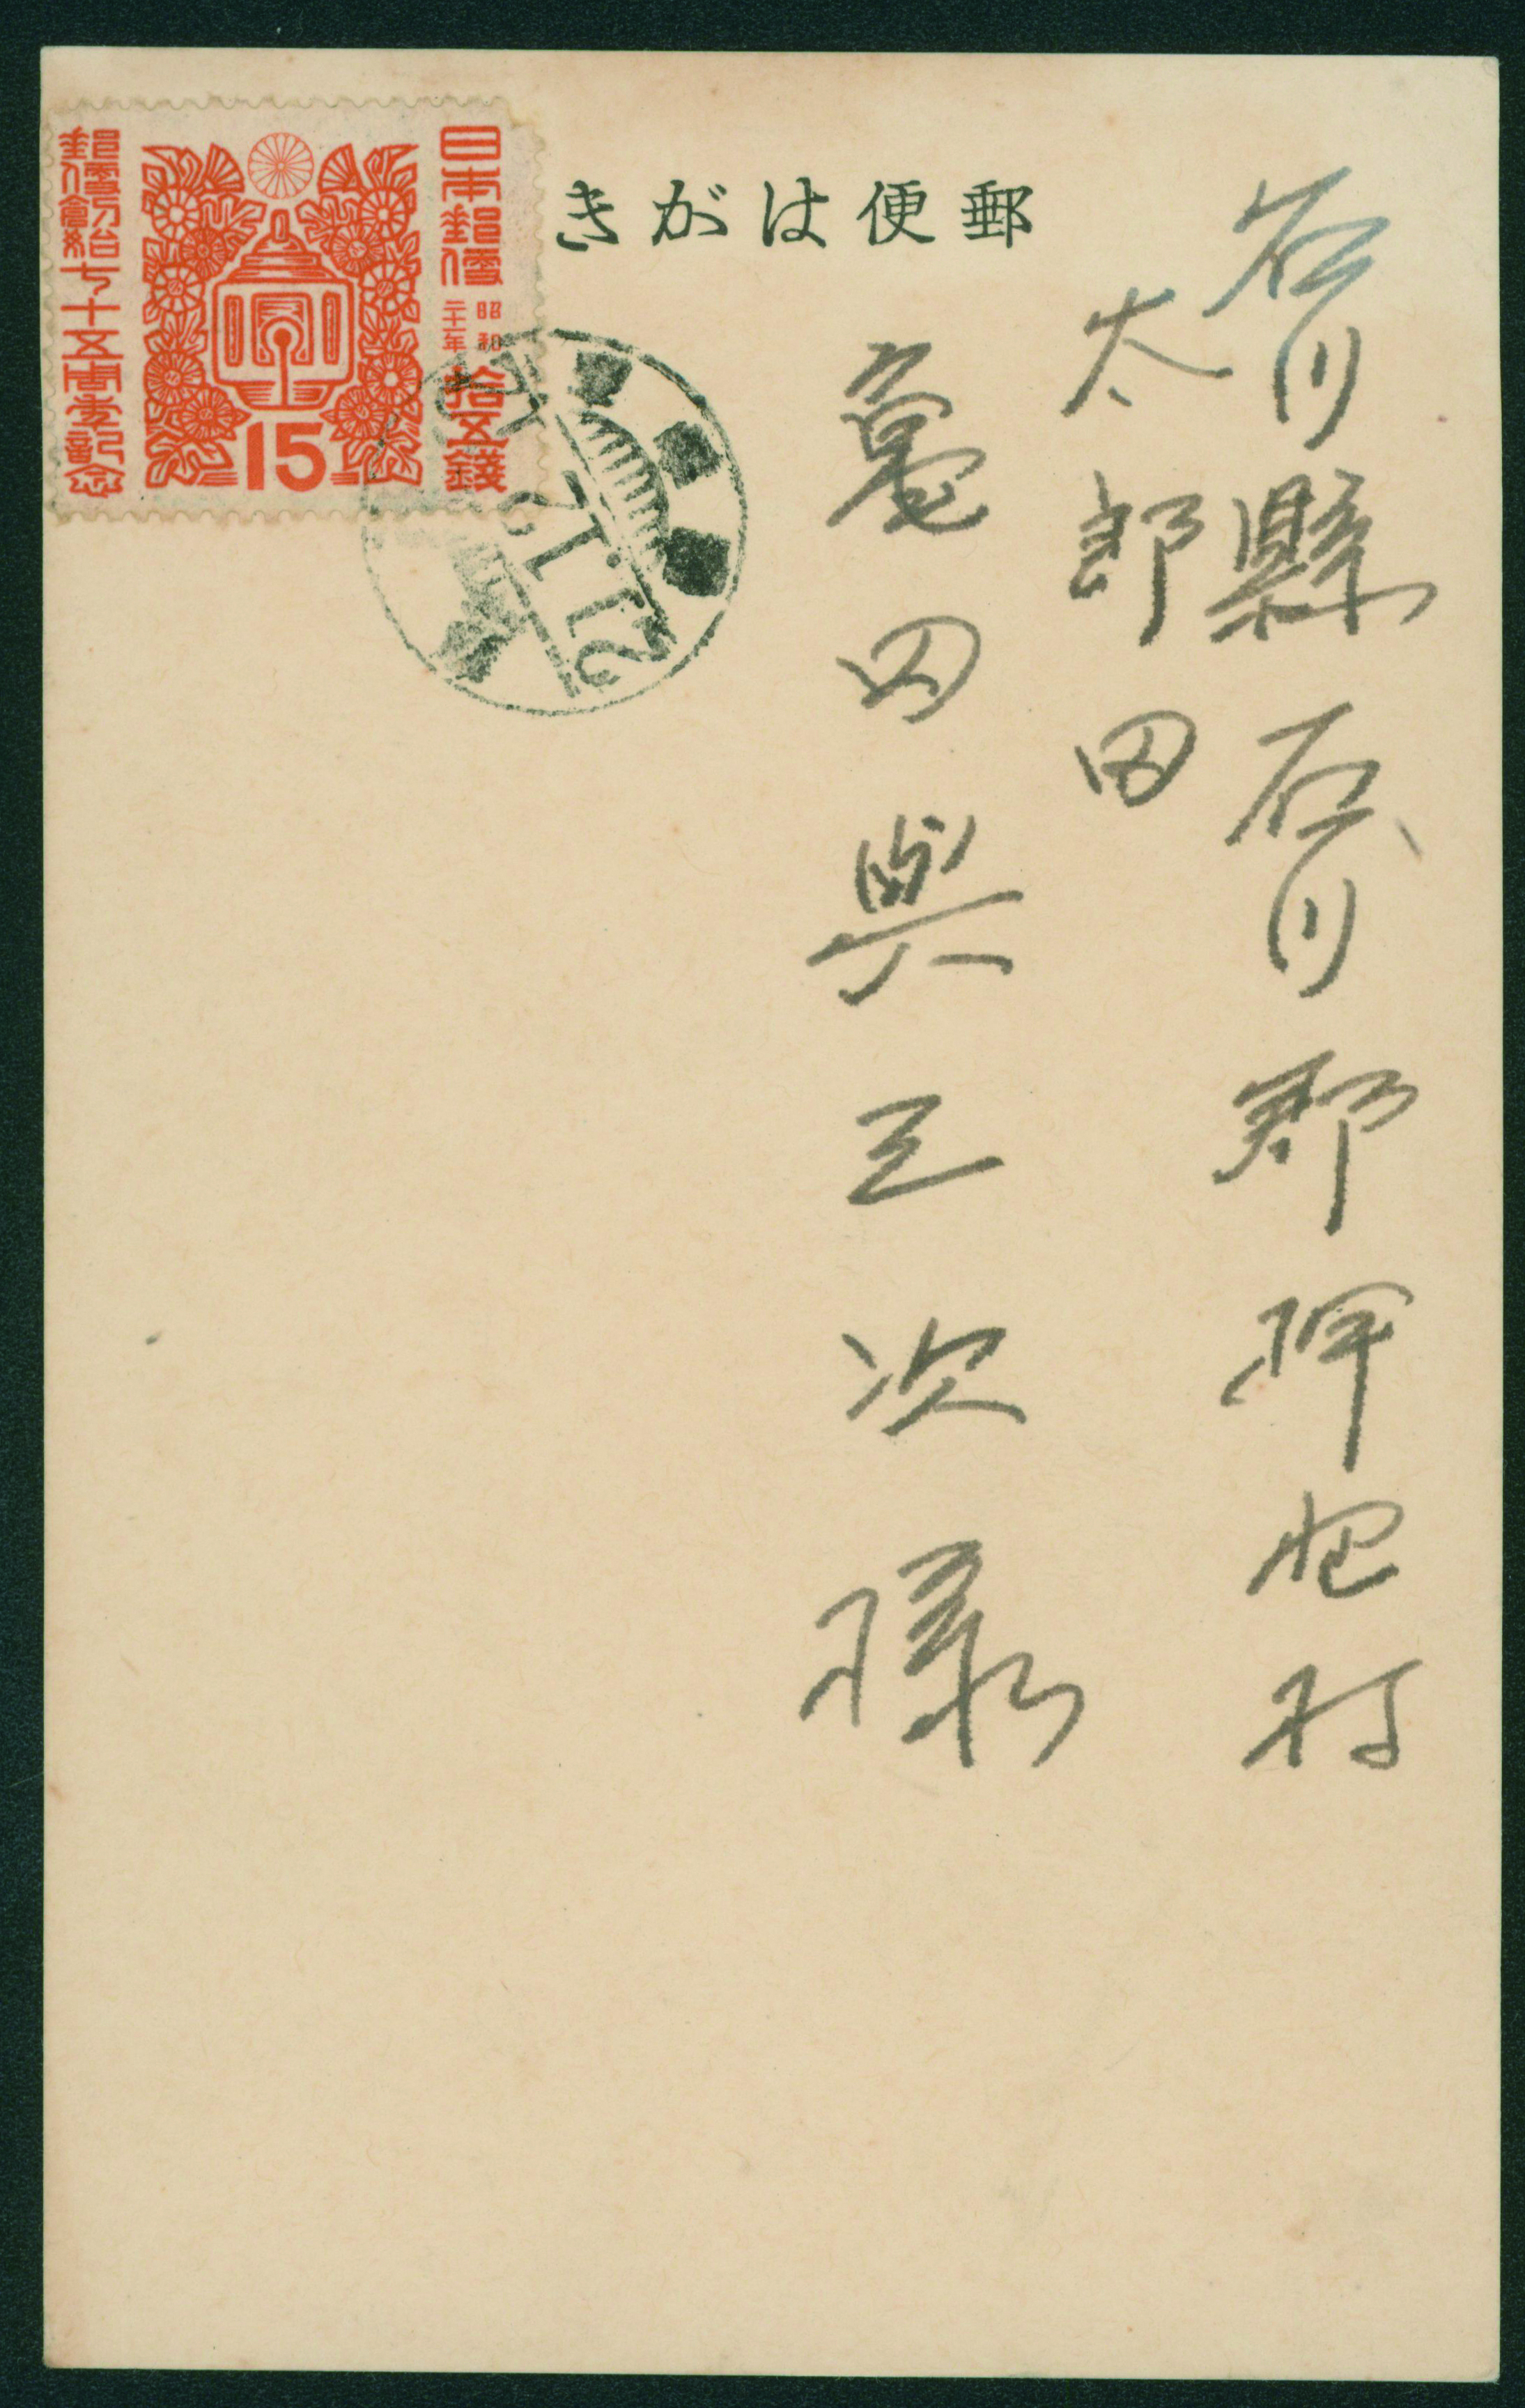 郵便はがき
日本郵便
昭和二十一年
拾五錢
15
郵便創始七十五周年記念
21.12
石川縣石川郡押野村
太郎田
亀田與三次様